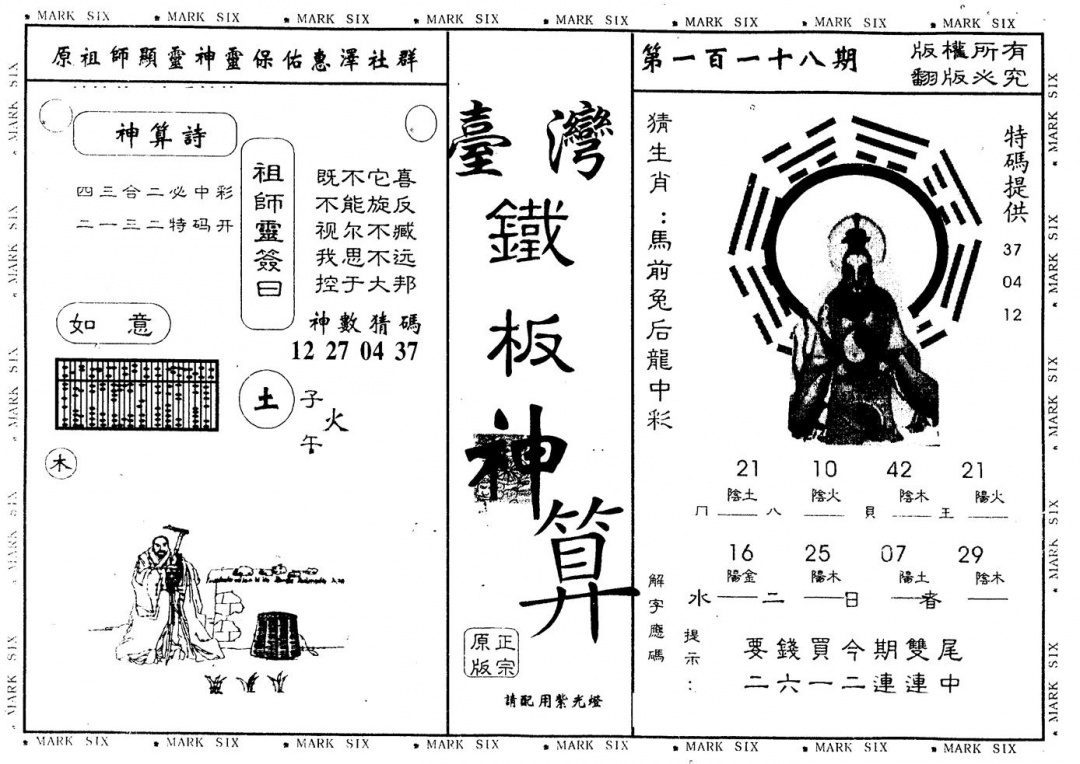 MARK SIX MARK SIX MARK SIX MARK SIX MARK SIX MARK SIX MARK SIX MARK SIX
原祖師顯靈神靈保佑惠澤社群
神算詩
四三合二必中彩
二一三二特码开
祖師靈簽曰
既不它喜
不能旋反
视尔不臧
我思不远
控于大邦
神數猜碼
12 27 04 37
如意
土
子
火
午
木
臺灣
鐵
板
神
算
正宗
原版
請配用紫光燈
第一百一十八期
版權所有
翻版必究
猜生肖：馬前兔后龍中彩
特碼提供
37
04
12
21 10 42 21
陰土 陰火 陰木 陽火
冂 八 貝 王
16 25 07 29
陽金 陽木 陽土 陰木
水 二 日 春
解字應碼
提示：
要錢買今期雙尾
二六一二連連中
MARK SIX MARK SIX MARK SIX MARK SIX MARK SIX MARK SIX MARK SIX MARK SIX
MARK SIX MARK SIX MARK SIX MARK SIX MARK SIX
MARK SIX MARK SIX MARK SIX MARK SIX MARK SIX